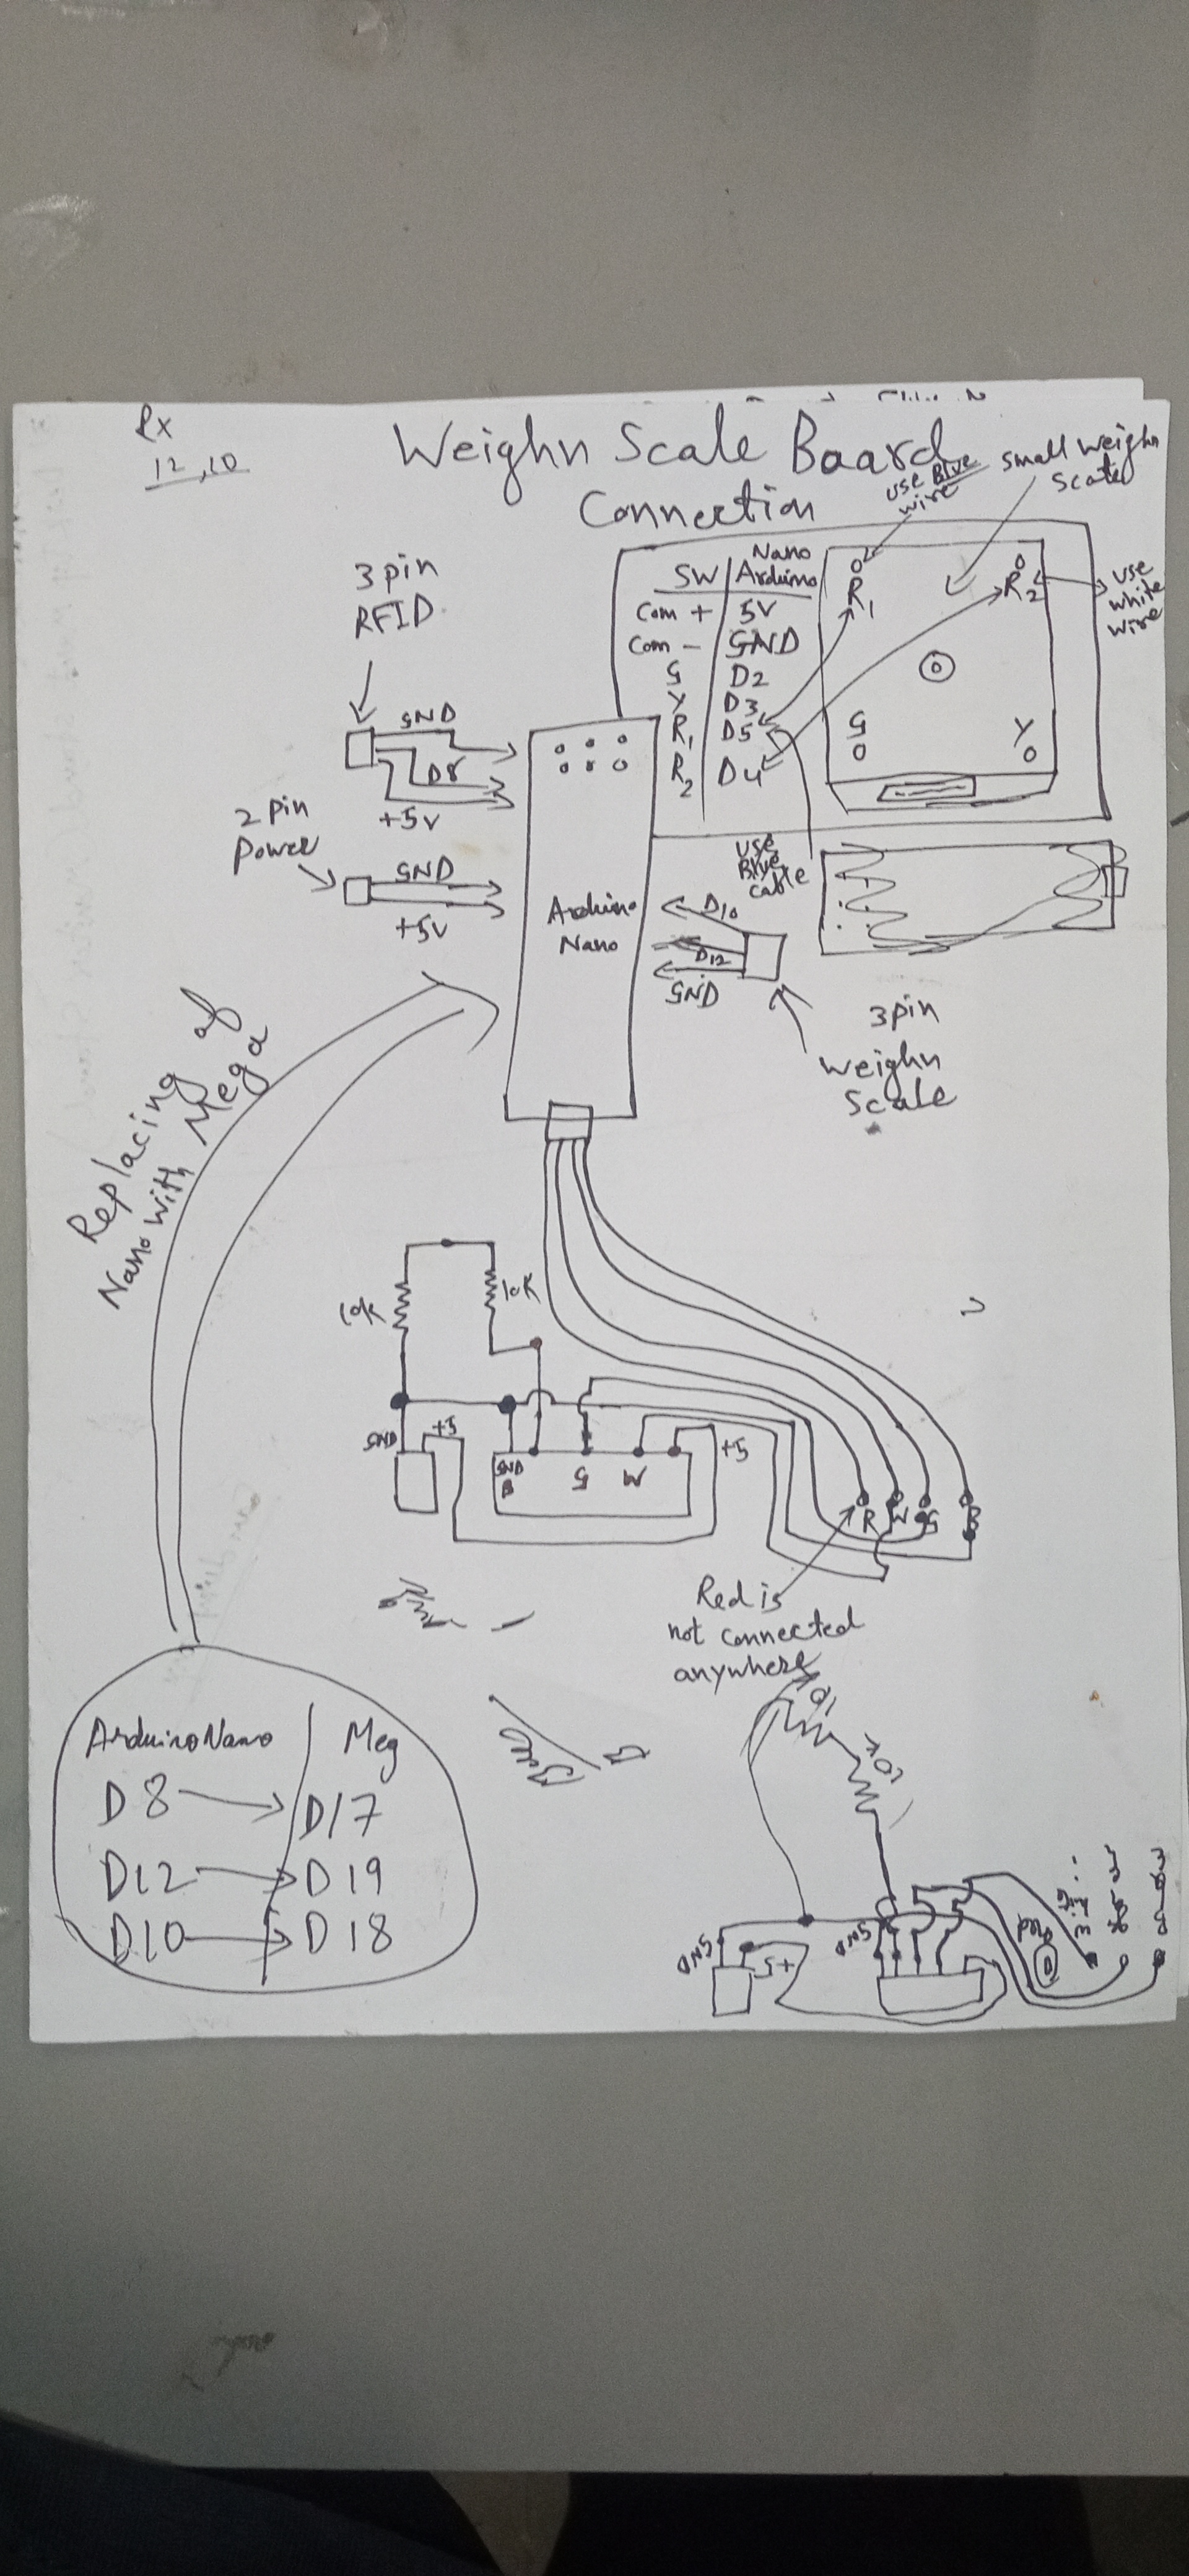 Rx
12,10
Weighn Scale Board
Connection
use Blue
wire
small weighn
scale
3 pin
RFID
SW
Nano
Arduino
Com +
5V
Com -
GND
G
D2
Y
D3
R1
D5
R2
D4
R1
R2
use
white
wire
G
Y
GND
D8
+5V
2 pin
Power
GND
+5V
Arduino
Nano
use
Blue
cable
D10
D12
GND
3pin
Weighn
Scale
Replacing of
Nano with Mega
10k
10K
GND
+5
GND
B
G
W
+5
R
W
G
B
Red is
not connected
anywhere
Arduino Nano
Meg
D8
D17
D12
D19
D10
D18
10K
GND
+5
GND